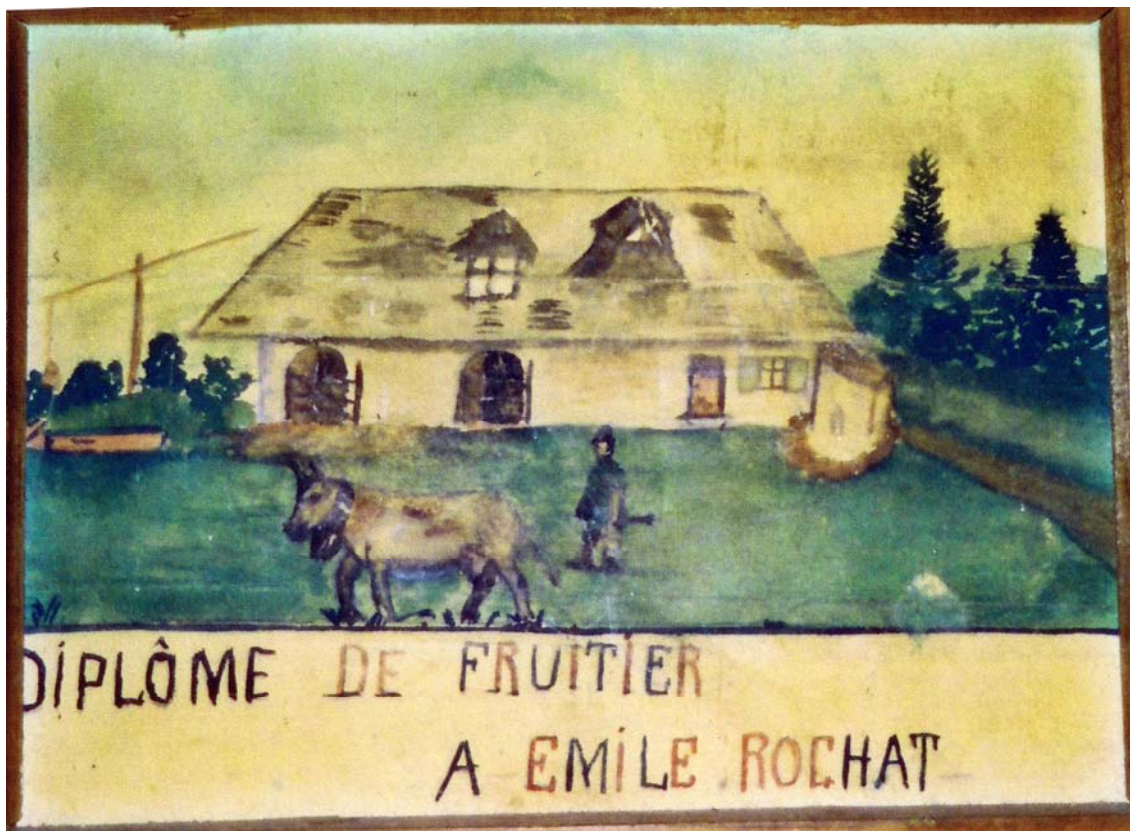 DIPLÔME DE FRUITIER
A EMILE ROCHAT